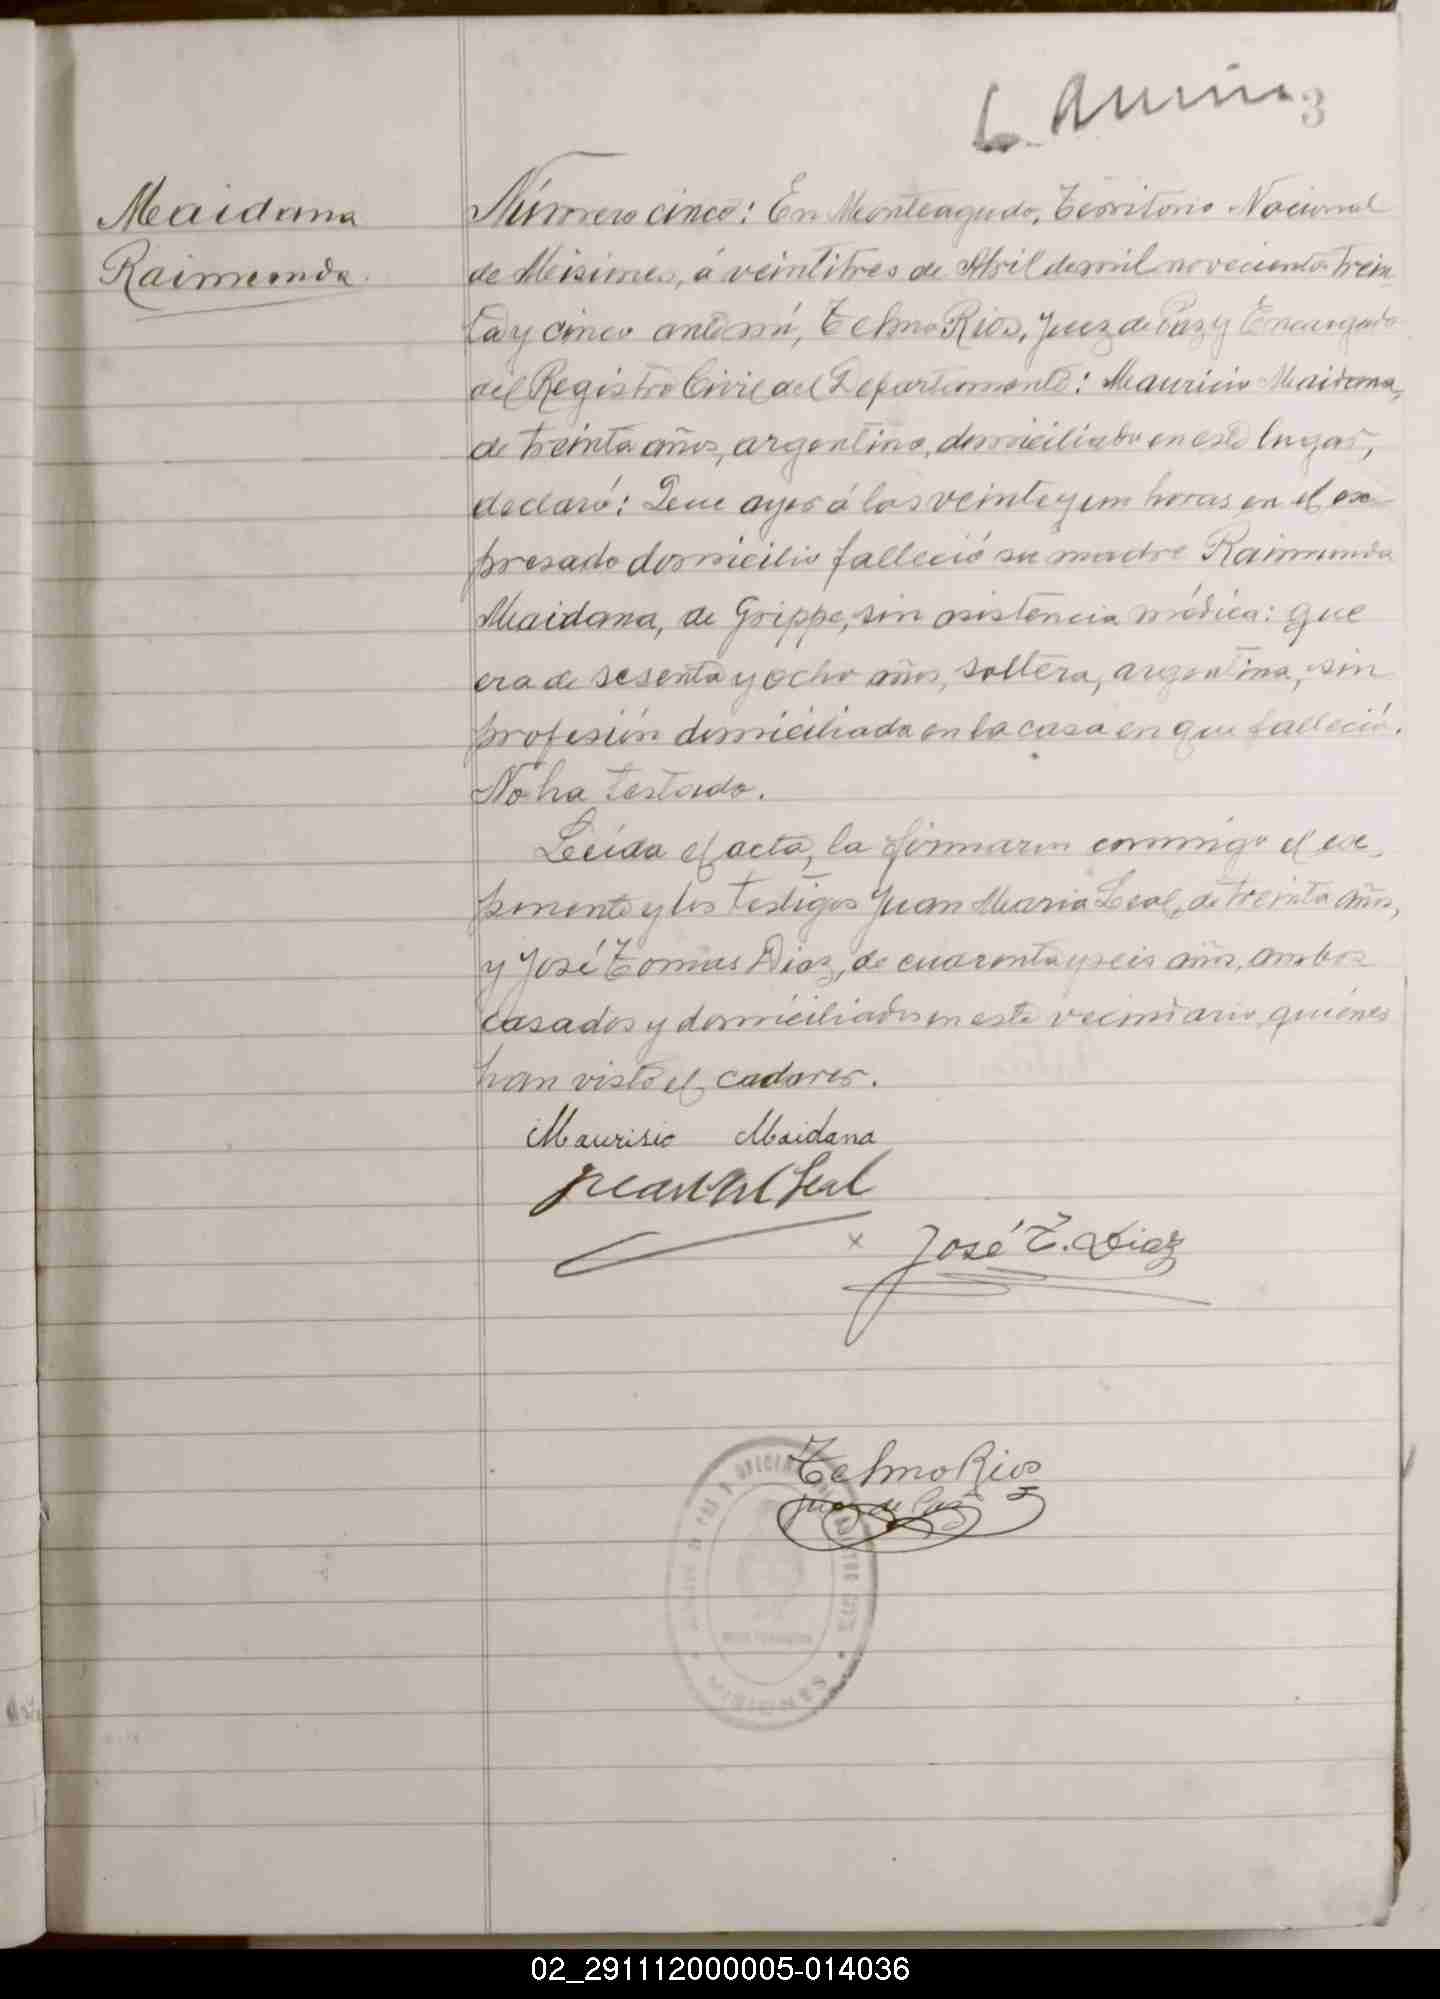 3
Maidana
Raimunda
Número cinco: En Monteagudo, Territorio Nacional
de Misiones, á veintitres de Abril de mil novecientos trein-
ta y cinco ante mí, Telmo Rios, Juez de Paz y Encargado
del Registro Civil del Departamento: Mauricio Maidana,
de treinta años, argentino, domiciliado en este lugar,
declaró: Que ayer á las veinte y un horas en el ex-
presado domicilio falleció su madre Raimunda
Maidana, de Grippe, sin asistencia médica: que
era de sesenta y ocho años, soltera, argentina, sin
profesión domiciliada en la casa en que falleció.
No ha testado.
Leída el acta, la firmaron conmigo el ex-
ponente y los testigos Juan Maria Leal, de treinta años,
y José Tomas Diaz, de cuarenta y seis años, ambos
casados y domiciliados en este vecindario, quiénes
han visto el cadaver.
Maurisio Maidana
Juan M Leal
x José T. Diaz
Telmo Rios
Juez de Paz
MISIONES
02_291112000005-014036